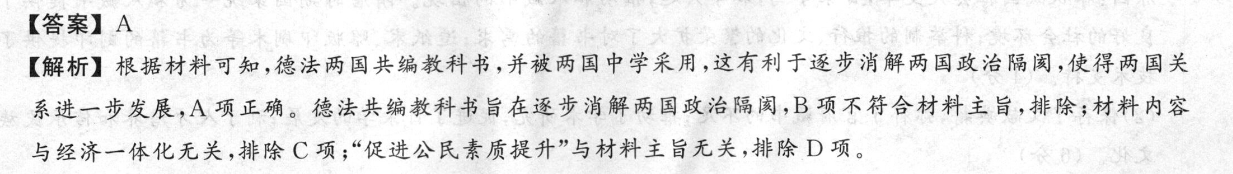 【答案】A
【解析】根据材料可知,德法两国共编教科书,并被两国中学采用,这有利于逐步消解两国政治隔阂,使得两国关
系进一步发展,A项正确。德法共编教科书旨在逐步消解两国政治隔阂,B项不符合材料主旨,排除;材料内容
与经济一体化无关,排除C项;“促进公民素质提升”与材料主旨无关,排除D项。